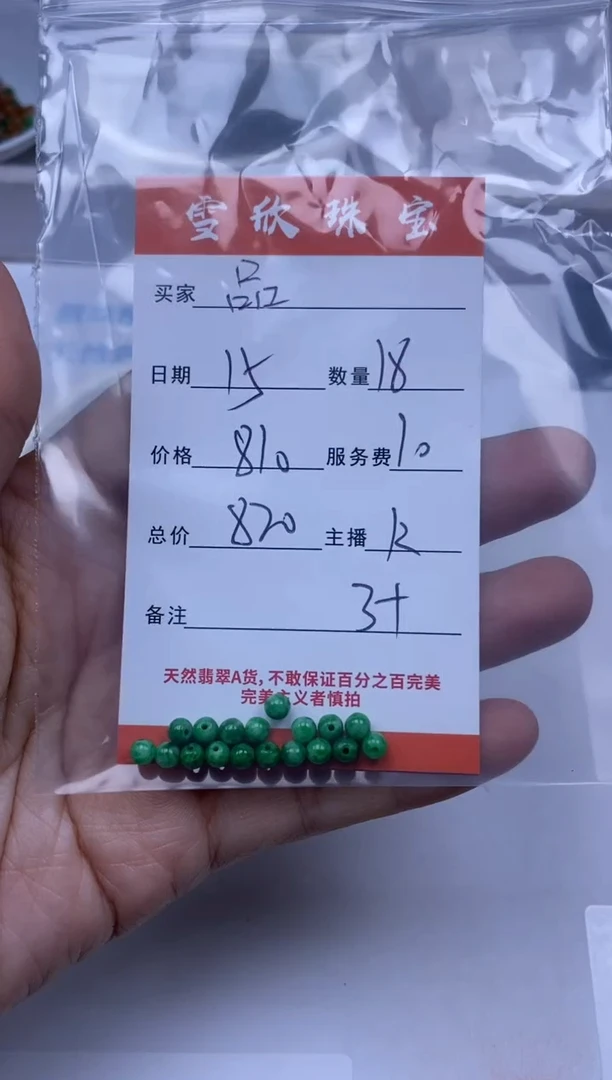 雪欣珠宝
买家 品
日期 15 数量 18
价格 810 服务费 10
总价 820 主播 12
备注 3+
天然翡翠A货,不敢保证百分之百完美
完美主义者慎拍